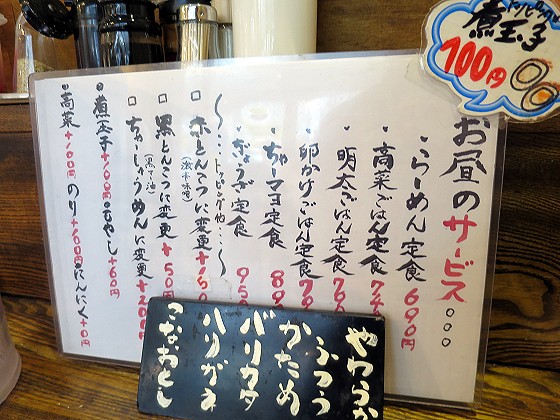 トッピング
煮玉子
100円
お昼のサービス。。。
・らーめん定食 690円
・高菜ごはん定食 74
・明太ごはん定食 700
・卵かけごはん定食 70
・ちゃーマヨ定食 89
・ぎょうざ定食 95
〜・・・トッピング他・・・〜
□ 赤とんこつに変更 +150
(激辛味噌)
□ 黒とんこつに変更 +50円
(黒マー油)
□ ちゃーしゅうめんに変更 +200円
煮玉子+100円 もやし+60円
高菜+100円 のり+100円 にんにく+0円
やわらか
ふつう
かため
バリカタ
ハリガネ
こなおとし